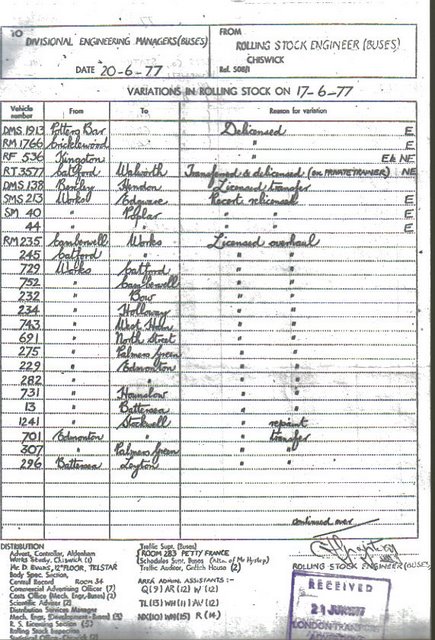 TO
DIVISIONAL ENGINEERING MANAGERS (BUSES)
DATE 20-6-77
FROM
ROLLING STOCK ENGINEER (BUSES)
CHISWICK
Rel. 508/1
VARIATIONS IN ROLLING STOCK ON 17-6-77
Vehicle number From To Reason for variation
DMS 1913 Potters Bar Delicensed E
RM 1766 Cricklewood " E
RF 536 Kingston " E& NE
RT 3577 Catford Walworth Transferred & delicensed (ex PRIVATE TRAINER) NE
DMS 138 Bexley Hendon Licensed transfer
SMS 213 Works Edgware Recert. relicensed E
SM 40 " Poplar " " E
44 " " " " E
RM 235 Camberwell Works Licensed overhaul
245 Catford " " "
729 Works Catford " "
752 " Camberwell " "
232 " Bow " "
234 " Holloway " "
743 " West Ham " "
691 " North Street " "
275 " Palmers Green " "
229 " Edmonton " "
282 " " " "
731 " Hounslow " "
13 " Battersea " "
1241 " Stockwell " repaint
701 Edmonton " " transfer
307 " Palmers Green " "
296 Battersea Leyton " "
continued over
ROLLING STOCK ENGINEER (BUSES)
DISTRIBUTION
Advert. Controller, Aldenham
Works Study, Chiswick (1)
Mr. D. EVANS, 12th FLOOR, TELSTAR
Body Spec. Section,
Central Record ROOM 34
Commercial Advertising Officer (7)
Costs Office (Mech. Engr. Buses) (2)
Scientific Adviser (2)
Distribution Services Manager
Mech. Engr. (Development Buses)
R. S. Licensing Section (5)
Traffic Supt. (Buses)
ROOM 283 PETTY FRANCE
Schedules Supt. Buses (Attn. of Mr Hyslop)
Traffic Auditor, Griffith House (2)
AREA ADMIN. ASSISTANTS :-
Q(9) AR(12) W(12)
TL(13) WH(11) AV(12)
NX(10) WN(15) R(16)
RECEIVED
21 JUN 1977
LONDON TRANSPORT